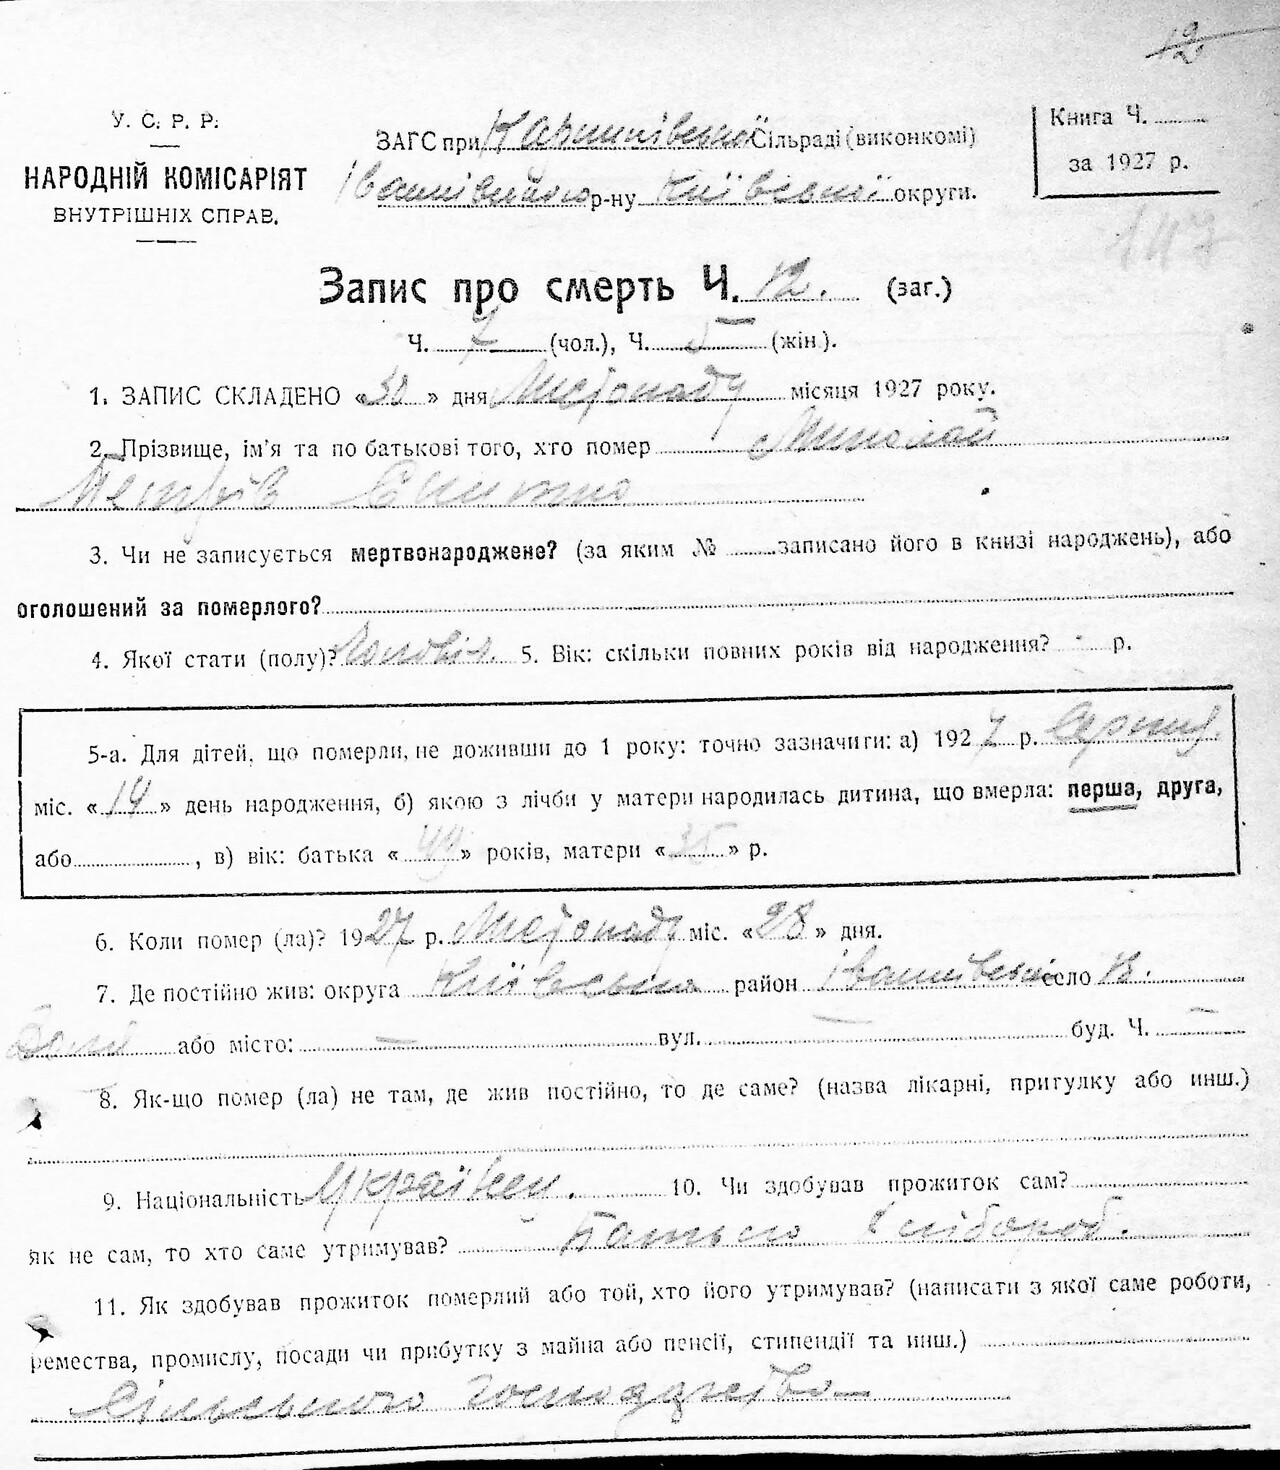 12
У. С. Р. Р.
НАРОДНІЙ КОМІСАРІЯТ
ВНУТРІШНІХ СПРАВ.
ЗАГС при Сільраді (виконкомі)
р-ну Київської округи.
Книга Ч.
за 1927 р.
147
Запис про смерть Ч. 12. (заг.)
Ч. 7 (чол.), Ч. 5 (жін.).
1. ЗАПИС СКЛАДЕНО «30» дня Листопаду місяця 1927 року.
2. Прізвище, ім'я та по батькові того, хто помер Миколай
Петрів
3. Чи не записується мертвонароджене? (за яким № записано його в книзі народжень), або
оголошений за померлого?
4. Якої стати (полу)? Чоловіч. 5. Вік: скільки повних років від народження? - р.
5-а. Для дітей, що померли, не доживши до 1 року: точно зазначити: а) 1927 р. Серпня
міс. «14» день народження, б) якою з лічби у матери народилась дитина, що вмерла: перша, друга,
або , в) вік: батька «44» років, матери «35» р.
6. Коли помер (ла)? 1927 р. Листопаду міс. «28» дня.
7. Де постійно жив: округа Київська район село
або місто: — вул. — буд. Ч. —
8. Як-що помер (ла) не там, де жив постійно, то де саме? (назва лікарні, пригулку або инш.)
9. Національність Українец. 10. Чи здобував прожиток сам?
як не сам, то хто саме утримував? Батько хлібороб.
11. Як здобував прожиток померлий або той, хто його утримував? (написати з якої саме роботи,
ремества, промислу, посади чи прибутку з майна або пенсії, стипендії та инш.)
Сільського господарство